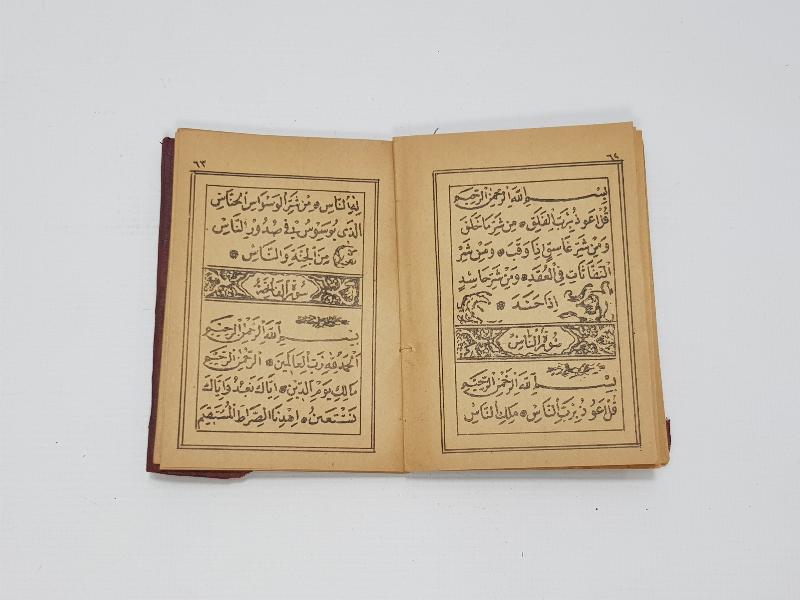 ٦٤
بِسْمِ اللهِ الرَّحْمٰنِ الرَّحِيمِ
قُلْ اَعُوذُ بِرَبِّ الْفَلَقِ ۞ مِنْ شَرِّ مَا خَلَقَ
وَمِنْ شَرِّ غَاسِقٍ اِذَا وَقَبَ ۞ وَمِنْ شَرِّ
النَّفَّاثَاتِ فِى الْعُقَدِ ۞ وَمِنْ شَرِّ حَاسِدٍ
اِذَا حَسَدَ ۞
سُورَةُ النَّاسِ
بِسْمِ اللهِ الرَّحْمٰنِ الرَّحِيمِ
قُلْ اَعُوذُ بِرَبِّ النَّاسِ ۞ مَلِكِ النَّاسِ
٦٣
اِلٰهِ النَّاسِ ۞ مِنْ شَرِّ الْوَسْوَاسِ الْخَنَّاسِ
الَّذِى يُوَسْوِسُ فِى صُدُورِ النَّاسِ
مِنَ الْجِنَّةِ وَالنَّاسِ ۞
سُورَةُ الْفَاتِحَةِ
بِسْمِ اللهِ الرَّحْمٰنِ الرَّحِيمِ
اَلْحَمْدُ لِلّٰهِ رَبِّ الْعَالَمِينَ ۞ اَلرَّحْمٰنِ الرَّحِيمِ
مَالِكِ يَوْمِ الدِّينِ ۞ اِيَّاكَ نَعْبُدُ وَاِيَّاكَ
نَسْتَعِينُ ۞ اِهْدِنَا الصِّرَاطَ الْمُسْتَقِيمَ